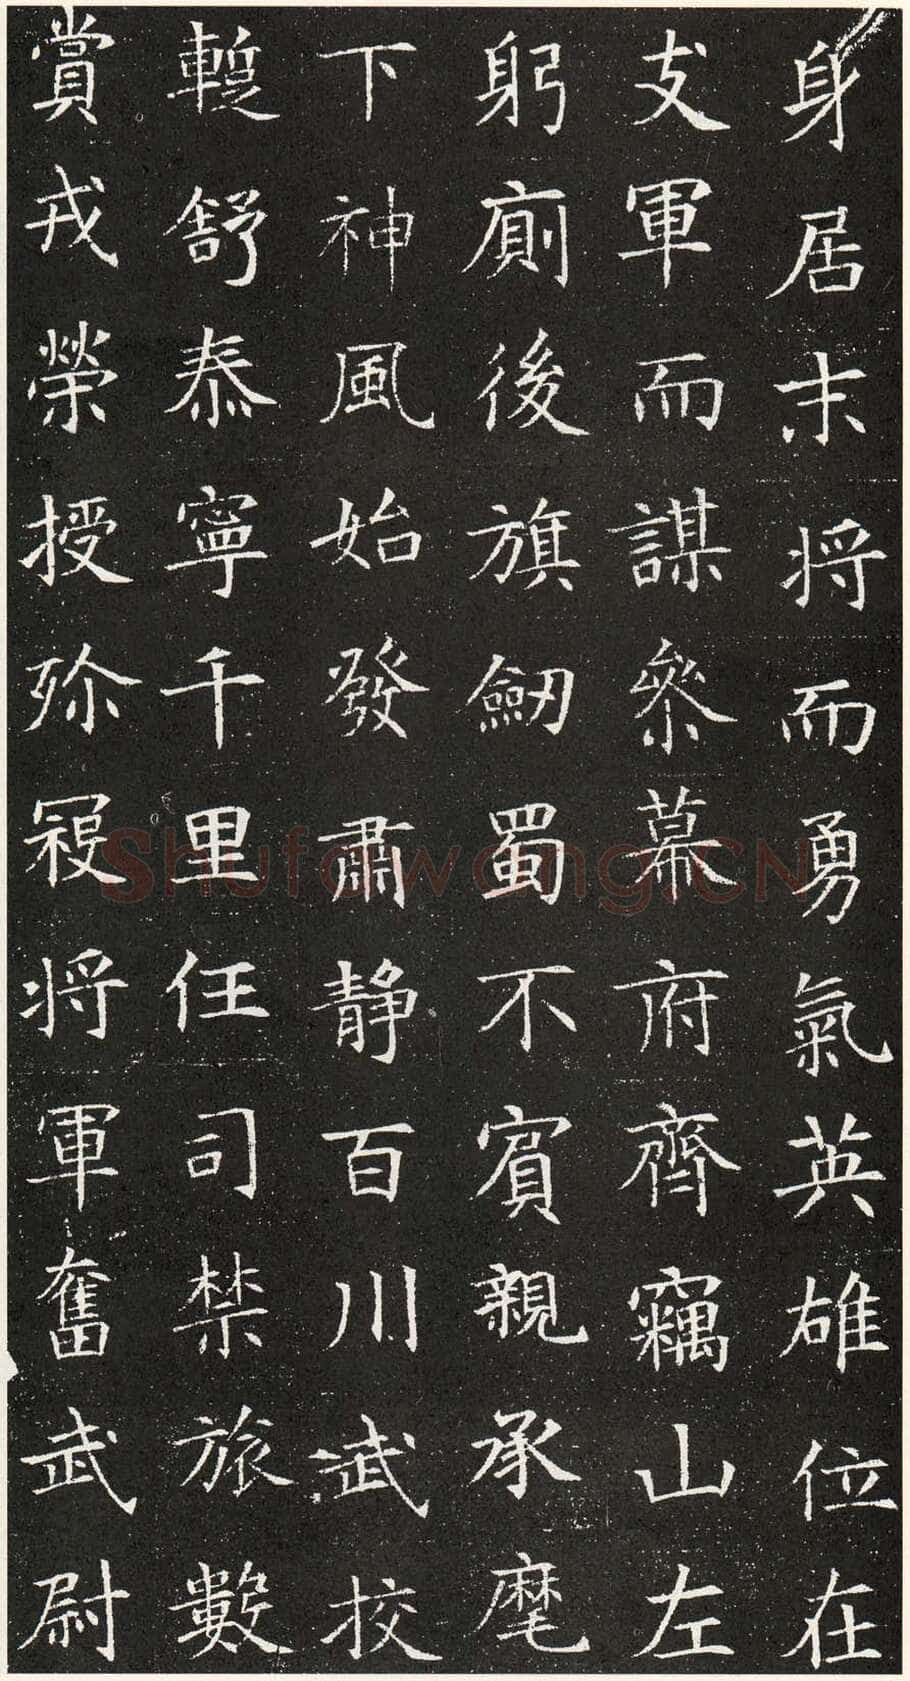 身居末将而勇氣英雄位在
支軍而謀參幕府齊竊山左
躬廁後旗劒蜀不賓親承麾
下神風始發肅静百川武校
舒泰寧千里任司禁旅數
賞戎榮授殄寇将軍奮武尉
Shufawang.CN